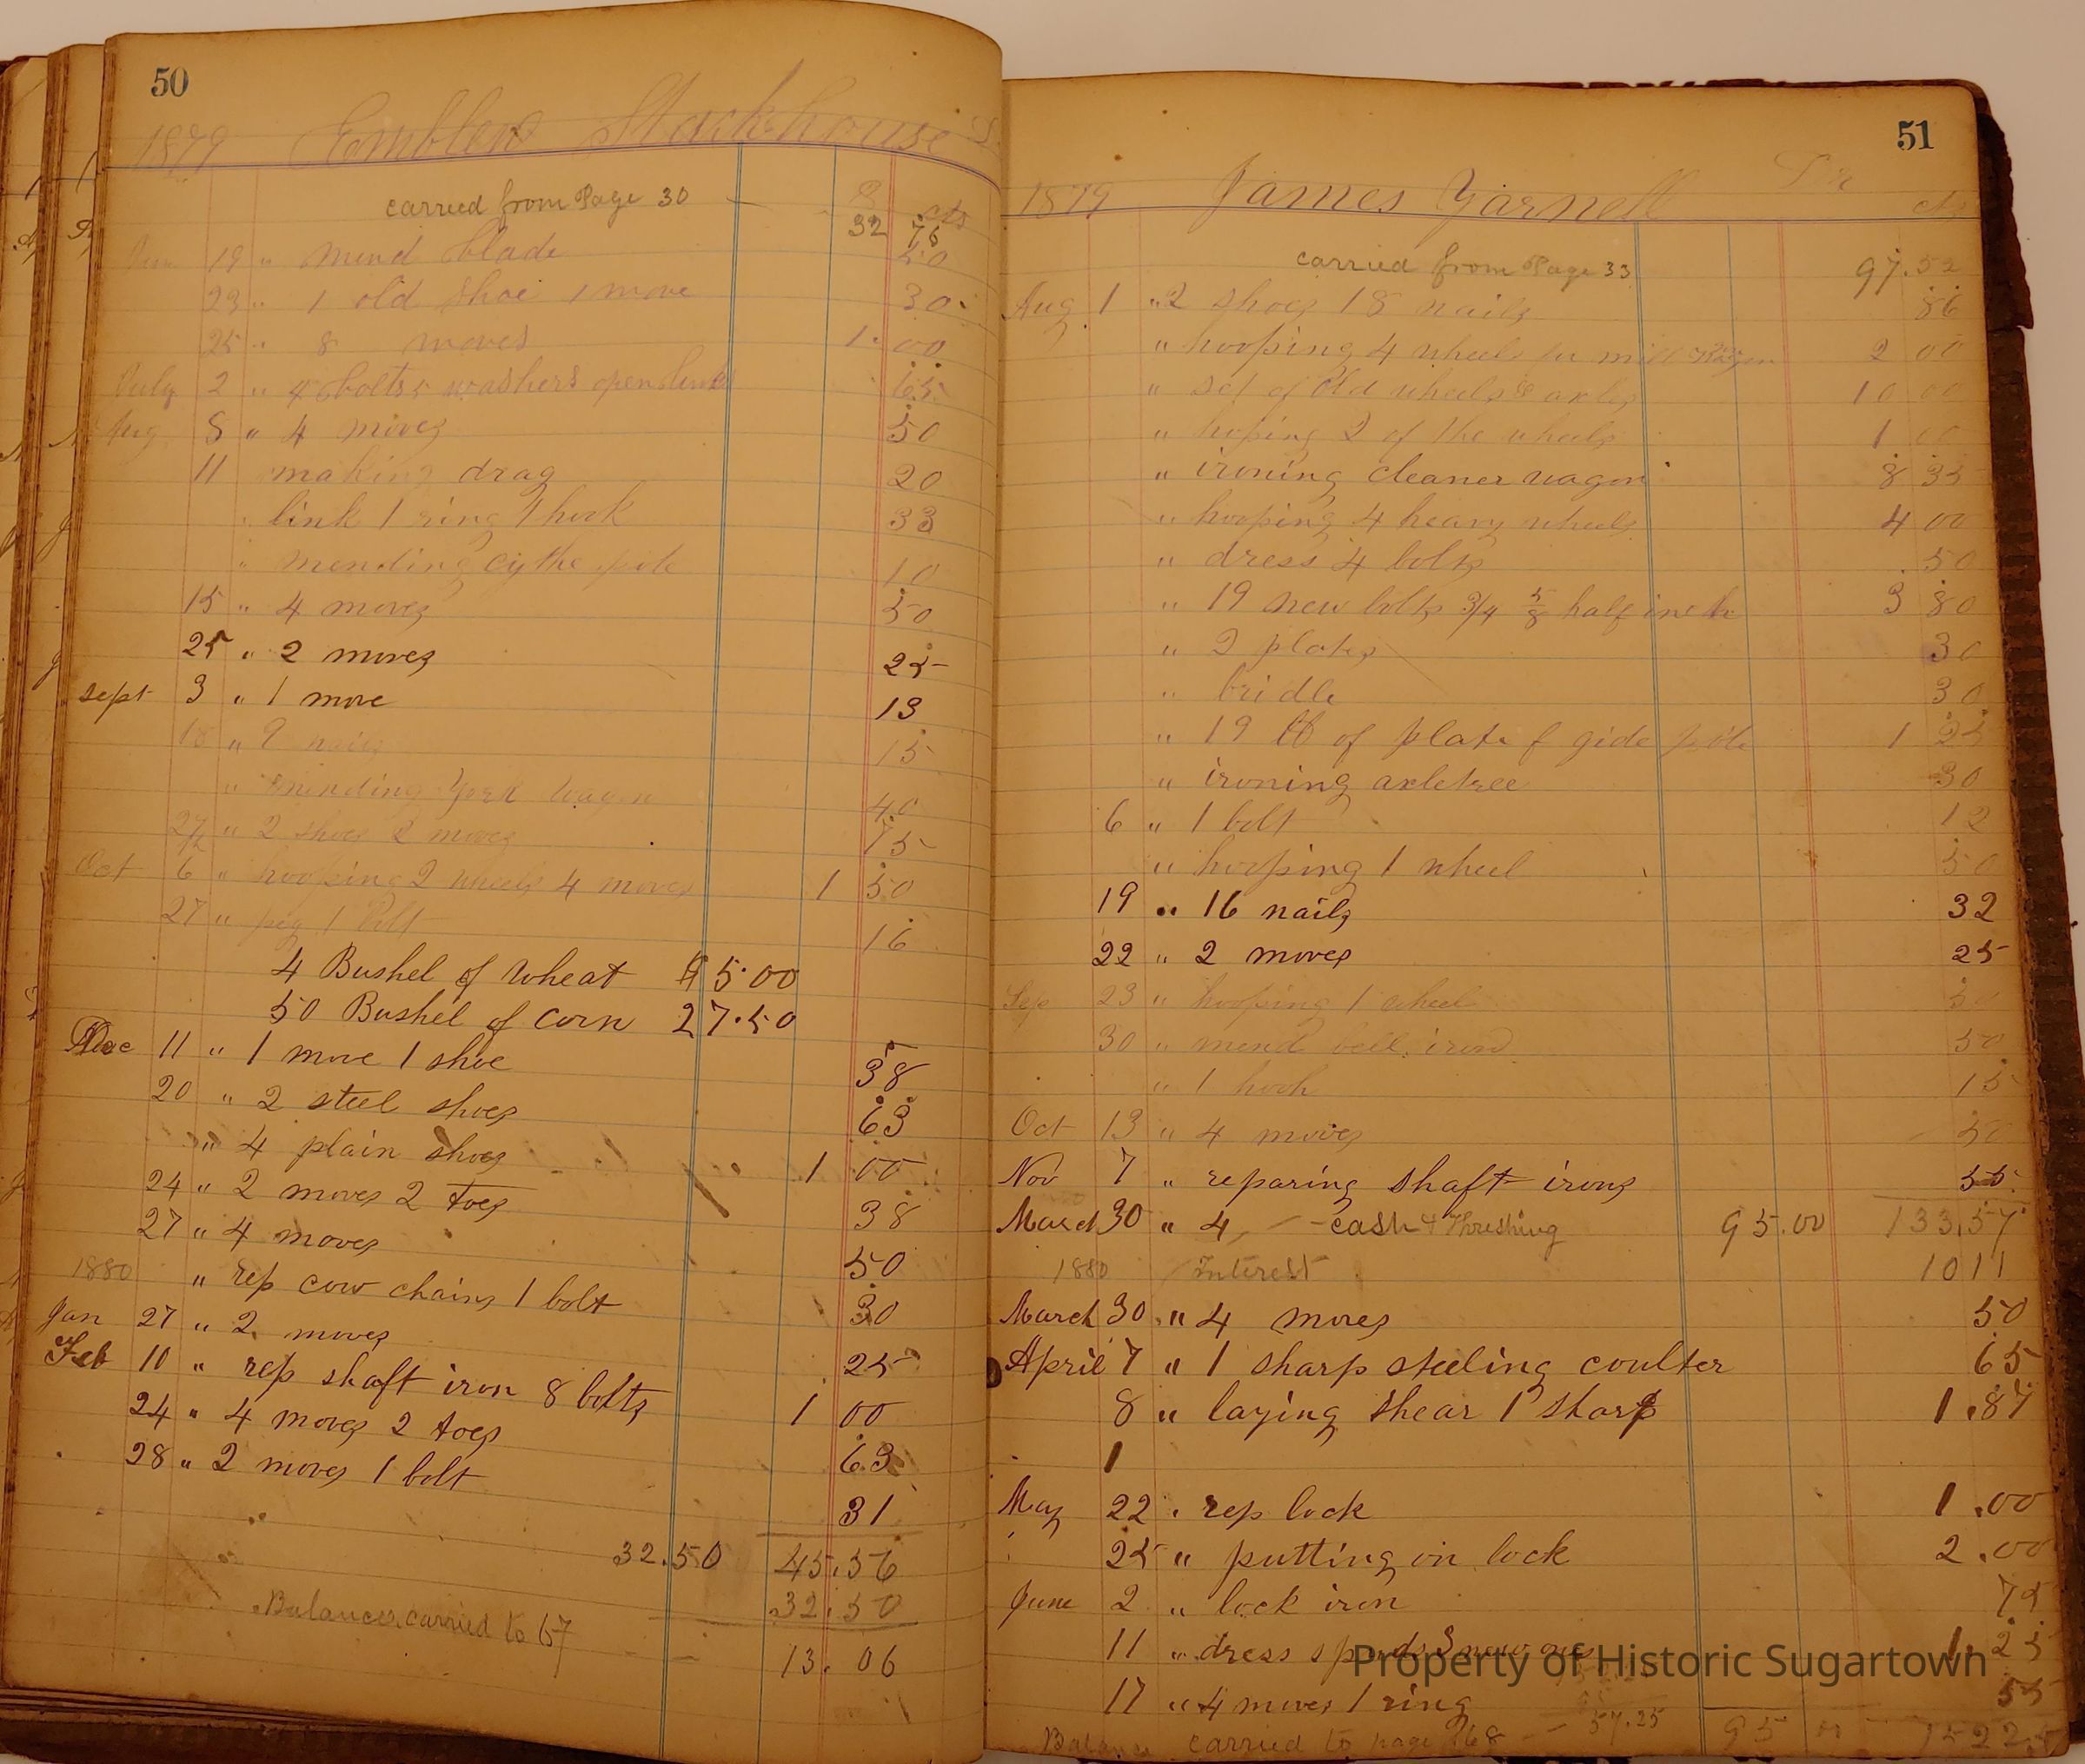 50
1879 Emblen Stackhouse
carried from Page 30 32 76
$ cts
June 19 " mend blade 50
23 " 1 old shoe 1 move 30
25 " 8 moves 1.00
July 2 " 4 bolts 5 washers open link 65
Aug 8 " 4 moves 50
11 making drag 20
" link 1 ring 1 hook 33
" mending cythe 10
15 " 4 moves 50
25 " 2 moves 25
sept 3 " 1 move 13
" nails 15
" mending York wagon 40
27 " 2 shoes 2 moves 75
Oct 6 " hooping 2 wheels 4 moves 1 50
27 " 1 bolt 16
4 Bushel of Wheat $5.00
50 Bushel of corn 27.50
Dec 11 " 1 move 1 shoe 38
20 " 2 steel shoes 63
" 4 plain shoes 1 00
24 " 2 moves 2 toes 38
27 " 4 moves 50
1880 " rep cow chains 1 bolt 30
Jan 27 " 2 moves 25
Feb 10 " rep shaft iron 8 bolts 1 00
24 " 4 moves 2 toes 63
28 " 2 moves 1 bolt 31
32.50 45.56
32.50
Balance carried to 67
13.06
51
1879 James Yarnell Dr
cts
carried from Page 33 97.52
Aug 1 " 2 shoes 18 nails 86
" hooping 4 wheels for mill wagon 2 00
" set of old wheels & axles 10 00
" hoping 2 of the wheels 1 00
" ironing cleaner wagon 8 35
" hooping 4 heavy wheels 4 00
" dress 4 bolts .50
" 19 new bolts 3/4 5/8 half inch 3 80
" 2 plates 30
" bridle 30
" 19 lb of plate f gide pole 1 25
" ironing axletree 30
6 " 1 bolt 12
" hooping 1 wheel 50
19 " 16 nails 32
22 " 2 moves 25
Sep 23 " hooping 1 wheel 50
30 " mend iron 50
" 1 hook 15
Oct 13 " 4 moves 50
Nov 7 " reparing shaft irons 55
March 30 " 4 cash & Threshing 95.00 133.57
1880 Interest 10 11
March 30 " 4 moves 50
April 7 " 1 sharp steeling coulter 65
8 " laying shear 1 sharp 1.87
1
May 22 " rep lock 1.00
25 " putting on lock 2.00
June 2 " lock iron 75
11 " dress 3 new 1.25
17 " 4 moves 1 ring 55
57.25
Balance carried to page 68 95
Property of Historic Sugartown